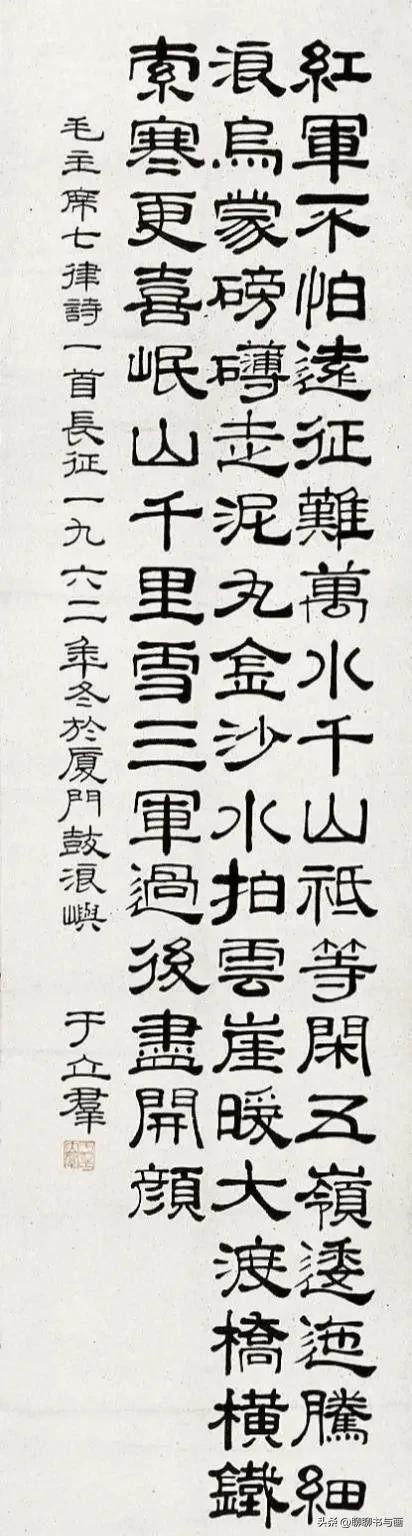 紅軍不怕遠征難萬水千山祗等閑五嶺逶迤騰細
浪烏蒙磅礴走泥丸金沙水拍雲崖暖大渡橋橫鐵
索寒更喜岷山千里雪三軍過後盡開顏
毛主席七律詩一首長征一九六二年冬於厦門鼓浪嶼 于立羣
头条 @聊聊书与画